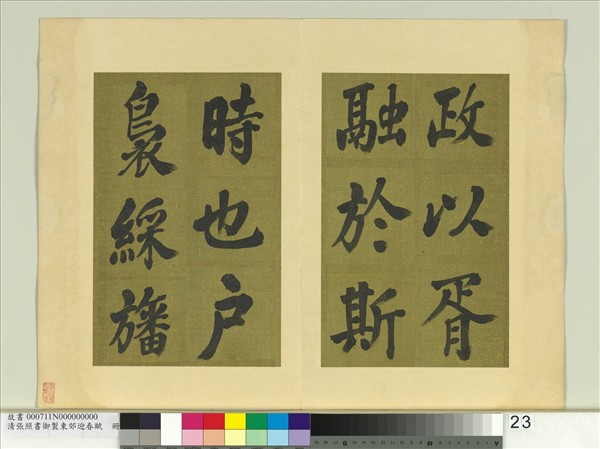 政以胥
融於斯
時也户
裊綵旛
故書 000711N000000000
清張照書御製東郊迎春賦 冊
23